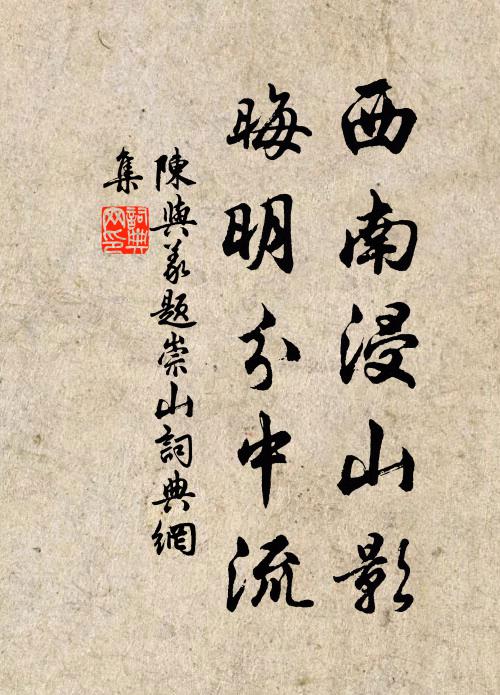 西南浸山影
晦明分中流
陳與義題崇山詞典網
集
詞典網印